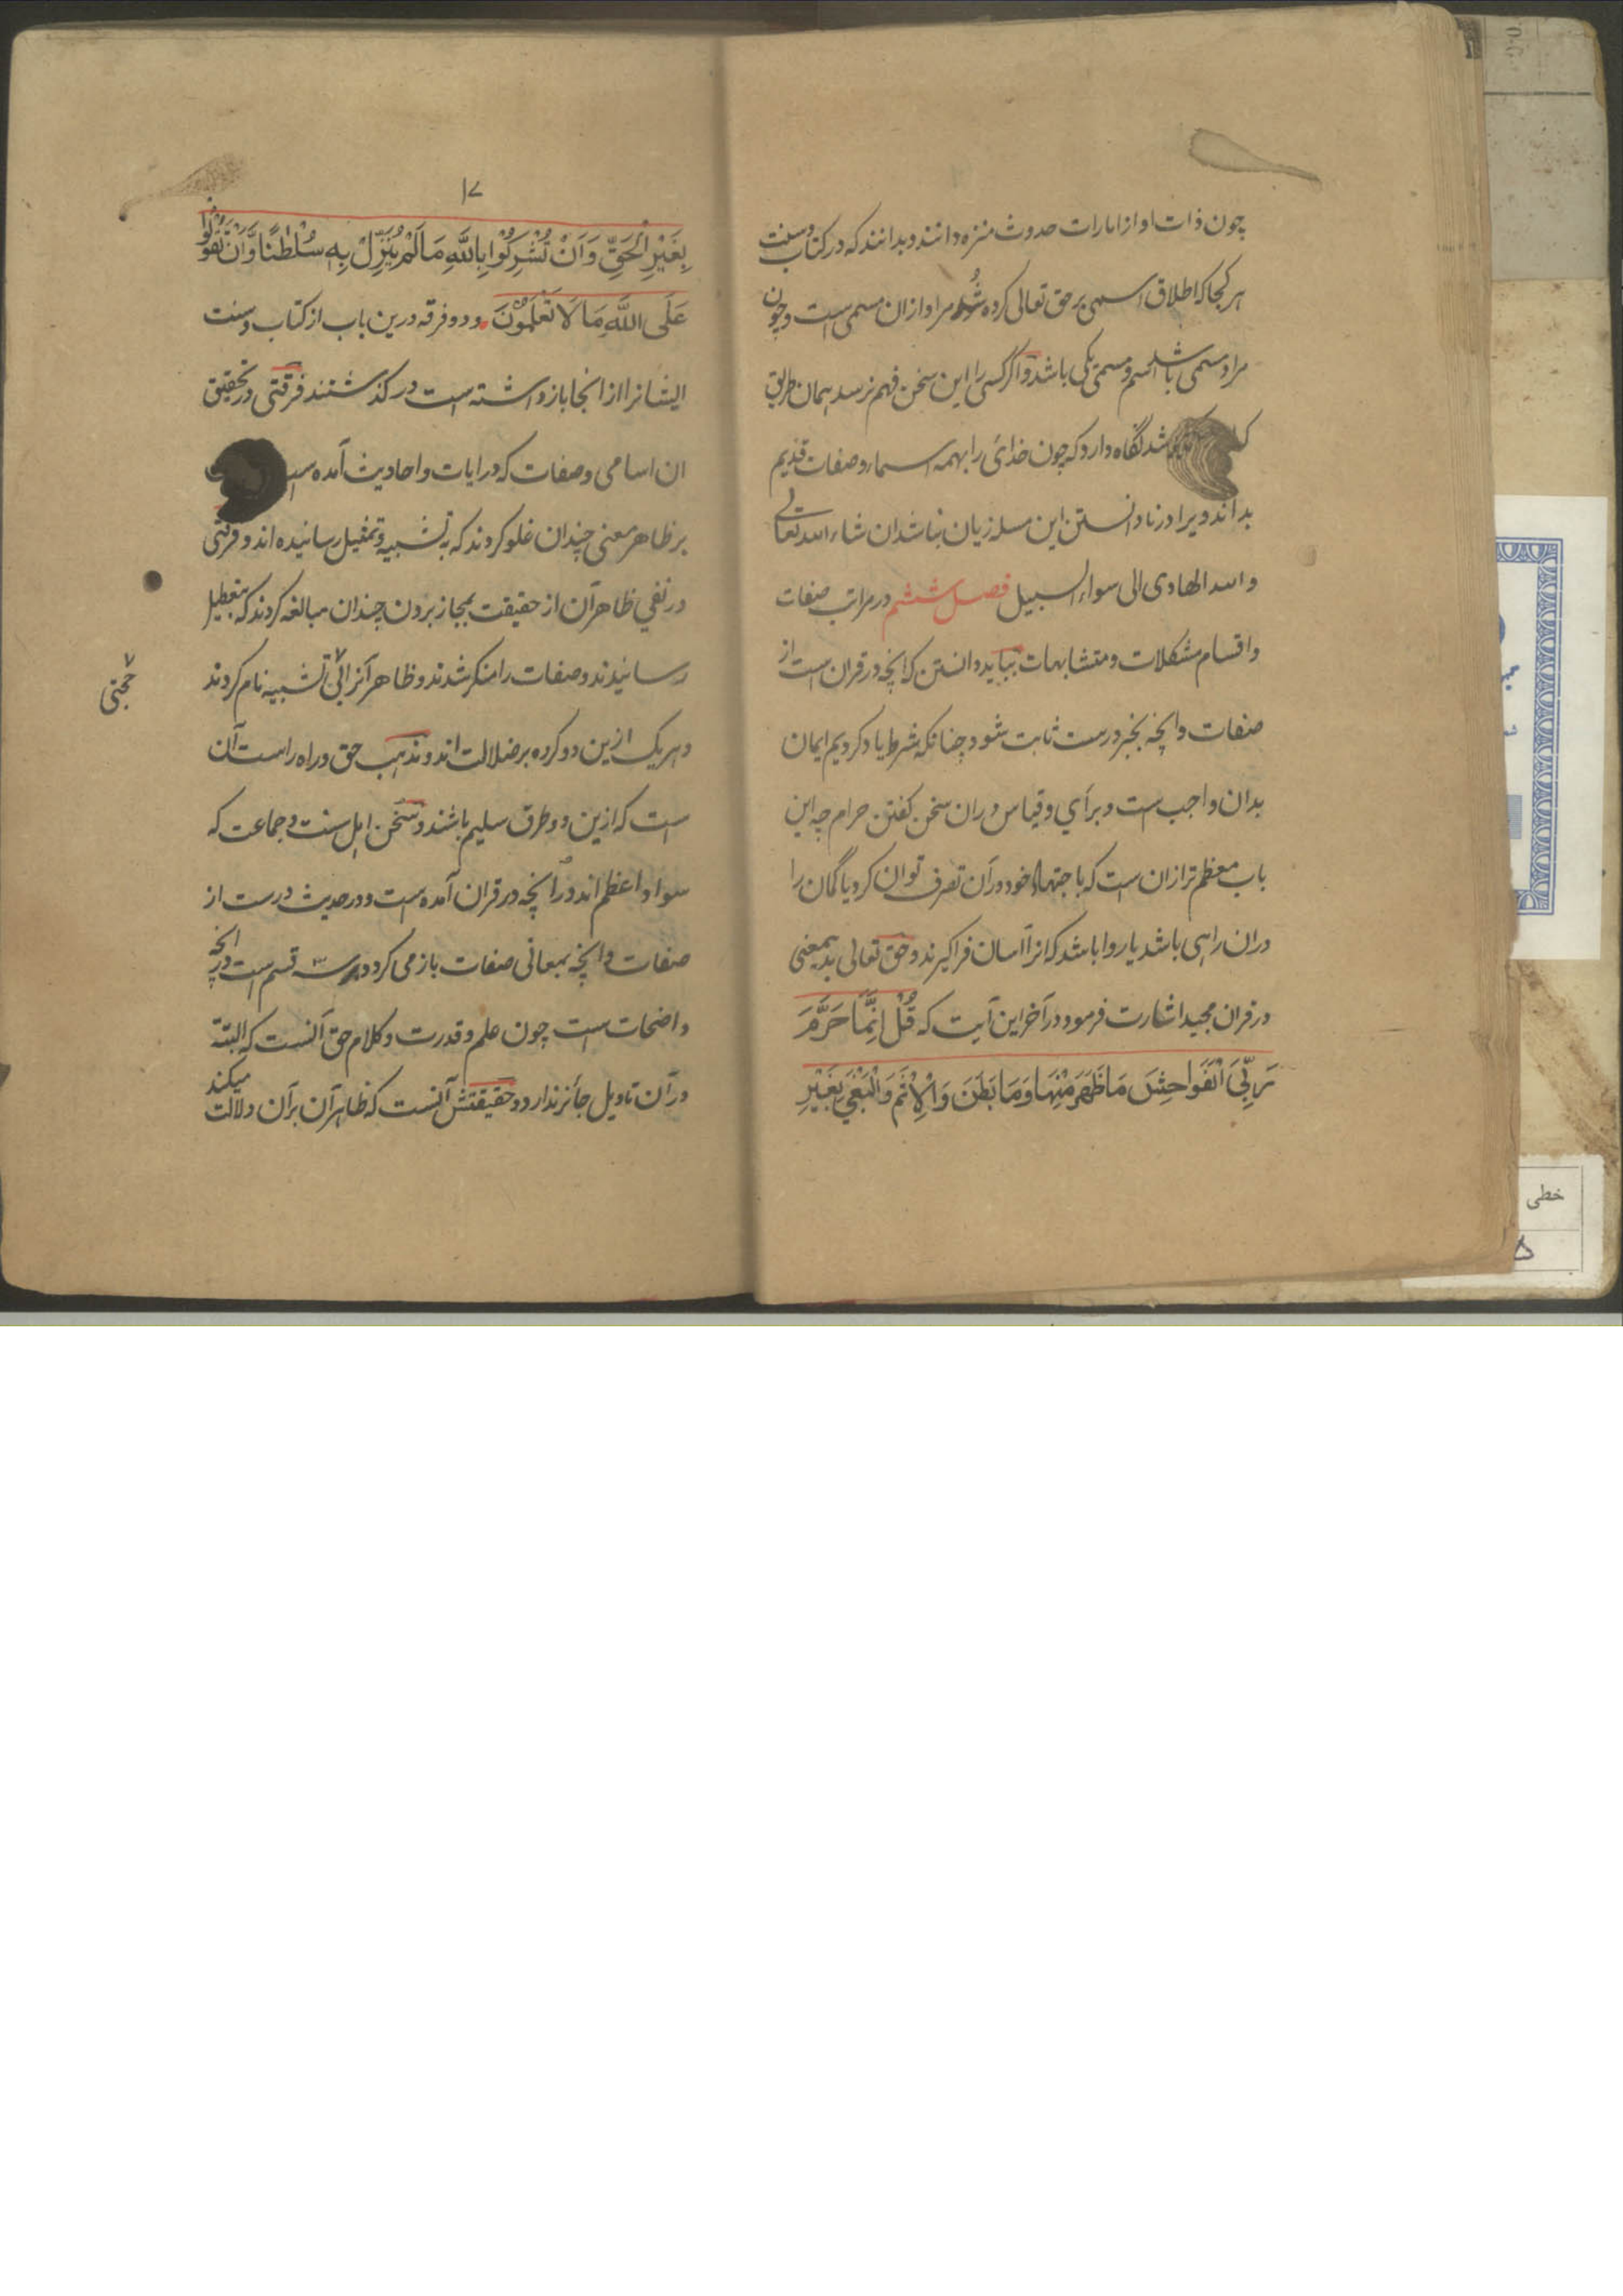 چون ذات او از امارات حدوث منزه دانند و بدانند که در کتاب و سنت
هر کجا که اطلاق اسمی بر حق تعالی کرده شود مراد ازان مسمی است و چون
مراد مسمی باشد اسم و مسمی یکی باشد و اگر کسی را این سخن فهم نرسد همان طریق
شد نگاه دارد که چون خدائ را بهمه اسماء و صفات قدیم
بداند ویرا در نادانستن این مسله زیان نباشد ان شاء الله تعالی
والله الهادی الی سواء السبیل فصل ششم در مراتب صفات
و اقسام مشکلات و متشابهات بباید دانستن که انچه در قران است از
صفات و انچه بخبر درست ثابت شود چنانکه شرط یاد کردیم ایمان
بدان واجب است و برأی و قیاس دران سخن کفتن حرام چه این
باب معظم تر ازان است که باجتهاد خود در آن تصرف توان کرد یا گمان را
دران راهی باشد یا روا باشد که انرا آسان فراگیرند و حق تعالی بدیمعنی
در قران مجید اشارت فرمود در آخر این آیت که قُلْ اِنَّمَا حَرَّمَ
رَبِّیَ الْفَوَاحِشَ مَا ظَهَرَ مِنْهَا وَمَا بَطَنَ وَالْاِثْمَ وَالْبَغْیَ بِغَیْرِ
۱۷
بِغَیْرِ الْحَقِّ وَاَنْ تُشْرِکُوْا بِاللّٰهِ مَا لَمْ یُنَزِّلْ بِهٖ سُلْطٰنًا وَّاَنْ تَقُوْلُوْا
عَلَی اللّٰهِ مَا لَا تَعْلَمُوْنَ ودو فرقه درین باب از کتاب و سنت
ایشانرا از انجا باز داشته است در کذشتند فرقتی در تحقیق
ان اسامی و صفات که در ایات و احادیث آمده است
بر ظاهر معنی چندان غلو کردند که به تشبیه و تمثیل رسانیده اند و فرقتی
در نفی ظاهر آن از حقیقت بمجاز بردن چندان مبالغه کردند که بتعطیل
رسانیدند و صفات را منکر شدند و ظاهر آنرا بی تشبیه نام کردند
حجتی
و هر یک ازین دو کروه بر ضلالت اند و مذهب حق و راه راست آن
است که ازین دو طرف سلیم باشند و سخن اهل سنت و جماعت که
سواد اعظم اند در آنچه در قران آمده است و در حدیث درست از
صفات و انچه بمعانی صفات باز می کردد بر سه قسم است در انچه
واضحات است چون علم و قدرت و کلام حق آنست که البتة
در آن تاویل جائز ندارد و حقیقتش آنست که ظاهر آن بر آن دلالت میکند
خطی